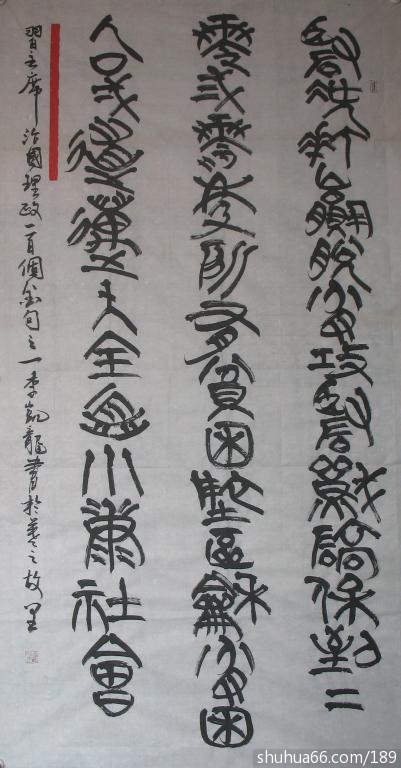 堅決打贏脫貧攻堅戰確保到二
零弍零年所有貧困地區龢貧困
人口弌道邁入全面小康社會
習主席治國理政一百個金句之一李凱龍書於羲之故里
shuhua66.com/189